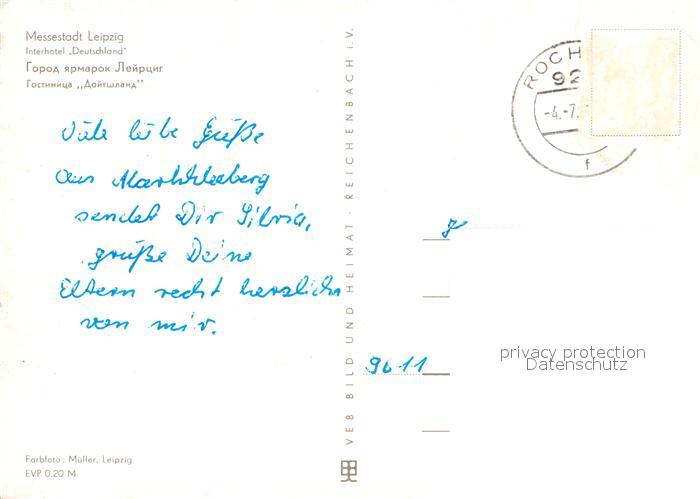 Messestadt Leipzig
Interhotel „Deutschland"
Город ярмарок Лейпциг
Гостиница ,,Дойтшланд"
Viele liebe Grüße
aus Markkleeberg
sendet Dir Silvia,
grüße Deine
Eltern recht herzlich
von mir.
Farbfoto: Müller, Leipzig
EVP 0,20 M
VEB BILD UND HEIMAT · REICHENBACH I.V.
ROCH
92
-4.-7.
f
9611
privacy protection
Datenschutz